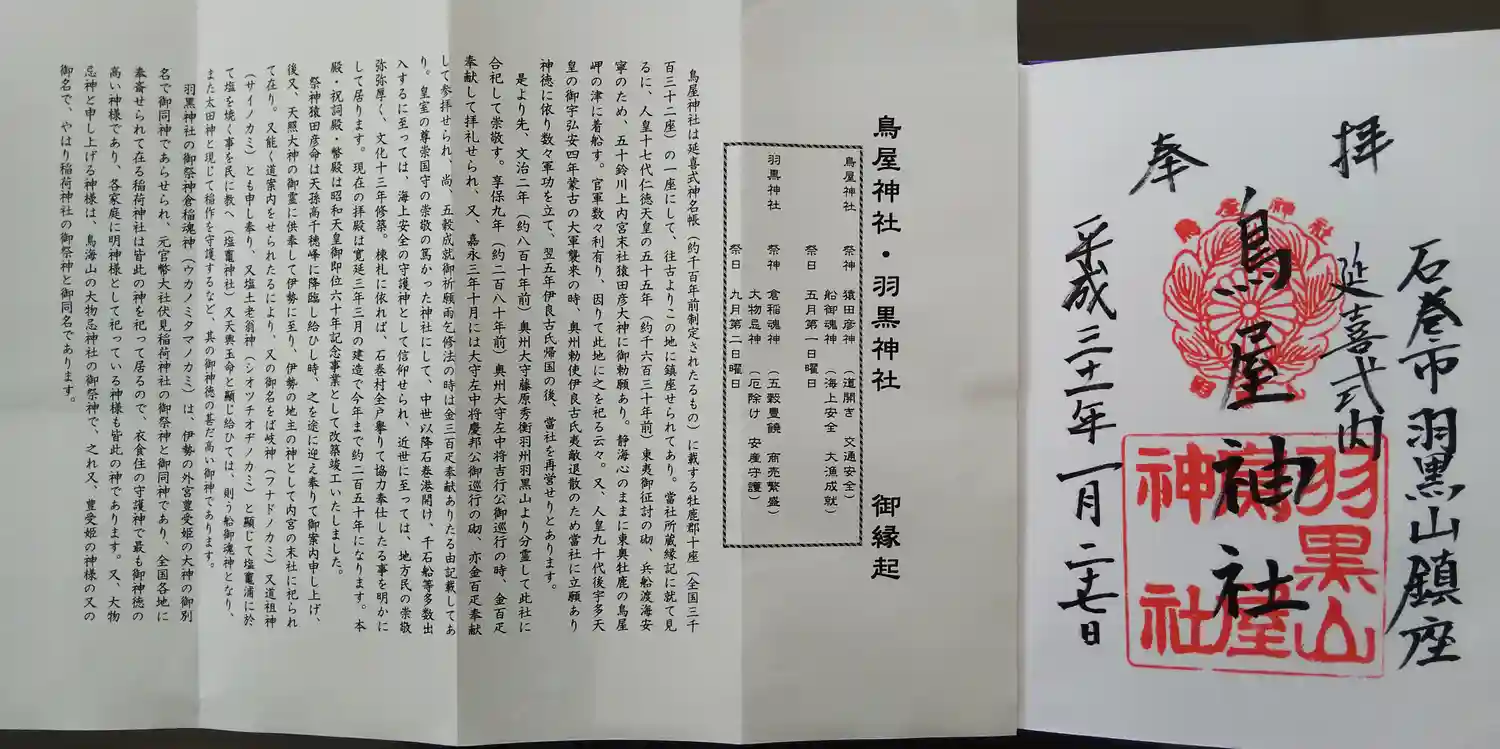 鳥屋神社・羽黒神社　御縁起
鳥屋神社　祭神　猿田彦神　（道開き　交通安全）
船御魂神　（海上安全　大漁成就）
祭日　五月第一日曜日
羽黒神社　祭神　倉稲魂神　（五穀豊饒　商売繁盛）
大物忌神　（厄除け　安産守護）
祭日　九月第二日曜日
鳥屋神社は延喜式神名帳（約千百年前制定されたるもの）に載する牡鹿郡十座（全国三千
百三十二座）の一座にして、往古よりこの地に鎮座せられてあり。當社所蔵縁記に就て見
るに、人皇十七代仁徳天皇の五十五年（約千六百三十年前）東夷御征討の砌、兵船渡海安
寧のため、五十鈴川上内宮末社猿田彦大神に御勅願あり。静海心のままに東奥牡鹿の鳥屋
岬の津に着船す。官軍数々利有り、因りて此地に之を祀る云々。又、人皇九十代後宇多天
皇の御宇弘安四年蒙古の大軍襲来の時、奥州勅使伊良古氏夷敵退散のため當社に立願あり
神徳に依り数々軍功を立て、翌五年伊良古氏帰国の後、當社を再営せりとあります。
是より先、文治二年（約八百十年前）奥州大守藤原秀衡羽州羽黒山より分霊して此社に
合祀して崇敬す。享保九年（約二百八十年前）奥州大守左中将吉行公御巡行の時、金百疋
奉献して拝礼せられ、又、嘉永三年十月には大守左中将慶邦公御巡行の砌、亦金百疋奉献
して参拝せられ、尚、五穀成就御祈願雨乞修法の時は金三百疋奉献ありたる由記載してあ
り。皇室の尊崇国守の崇敬の篤かった神社にして、中世以降石巻港開け、千石船等多数出
入するに至っては、海上安全の守護神として信仰せられ、近世に至っては、地方民の崇敬
弥弥厚く、文化十三年修築。棟札に依れば、石巻村全戸擧りて協力奉仕したる事を明かに
して居ります。現在の拝殿は寛延三年三月の建造で今年まで約二百五十年になります。本
殿・祝詞殿・幣殿は昭和天皇御即位六十年記念事業として改築竣工いたしました。
祭神猿田彦命は天孫高千穂峰に降臨し給ひし時、之を途に迎え奉りて御案内申し上げ、
後又、天照大神の御霊に供奉して伊勢に至り、伊勢の地主の神として内宮の末社に祀られ
て在り。又能く道案内をせられたるにより、又の御名をば岐神（フナドノカミ）又道祖神
（サイノカミ）とも申し奉り、又塩土老翁神（シオツチオヂノカミ）と顕じて塩竃浦に於
て塩を焼く事を民に教へ（塩竃神社）又天興玉命と顕じ給ひては、則う船御魂神となり、
また太田神と現じて稲作を守護するなど、其の御神徳の甚だ高い御神であります。
羽黒神社の御祭神倉稲魂神（ウカノミタマノカミ）は、伊勢の外宮豊受姫の大神の御別
名で御同神であらせられ、元官幣大社伏見稲荷神社の御祭神と御同神であり、全国各地に
奉斎せられて在る稲荷神社は皆此の神を祀って居るので、衣食住の守護神で最も御神徳の
高い神様であり、各家庭に明神様として祀っている神様も皆此の神であります。又、大物
忌神と申し上げる神様は、鳥海山の大物忌神社の御祭神で、之れ又、豊受姫の神様の又の
御名で、やはり稲荷神社の御祭神と御同名であります。
石巻市羽黒山鎮座
延喜式内
拝
鳥屋神社
奉
平成三十一年一月二十七日
羽黒山
鳥屋
神社